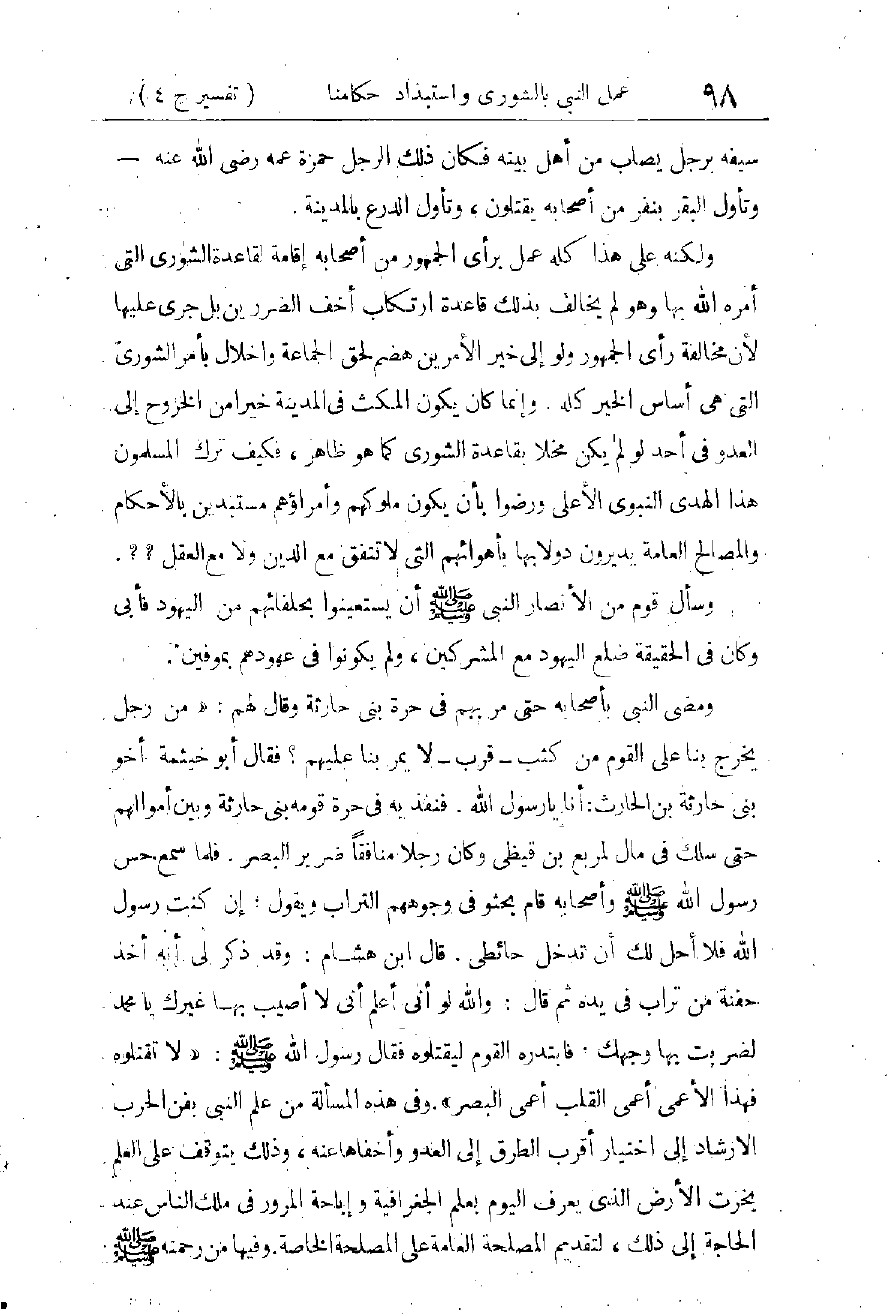 ٩٨ عمل النبي بالشورى واستبداد حكامنا ( تفسير ج ٤ )
سيفه برجل يصاب من أهل بيته فكان ذلك الرجل حمزة عمه رضى الله عنه —
وتأول البقر بنفر من أصحابه يقتلون ، وتأول الدرع بالمدينة .
ولكنه على هذا كله عمل برأى الجمهور من أصحابه إقامة لقاعدة الشورى التى
أمره الله بها وهو لم يخالف بذلك قاعدة ارتكاب أخف الضررين بل جرى عليها
لأن مخالفة رأى الجمهور ولو إلى خير الأمرين هضم لحق الجماعة واخلال بأمر الشورى
التى هى أساس الخير كله . وإنما كان يكون المكث فى المدينة خيرا من الخروج إلى
العدو فى أحد لو لم يكن مخلا بقاعدة الشورى كما هو ظاهر ، فكيف ترك المسلمون
هذا الهدى النبوى الأعلى ورضوا بأن يكون ملوكهم وأمراؤهم مستبدين بالأحكام
والمصالح العامة يديرون دولابها بأهوائهم التى لا تتفق مع الدين ولا مع العقل ؟ ؟ .
وسأل قوم من الأنصار النبى ﷺ أن يستعينوا بحلفائهم من اليهود فأبى
وكان فى الحقيقة ضلع اليهود مع المشركين ، ولم يكونوا فى عهودهم بموفين .
ومضى النبى بأصحابه حتى مر بهم فى حرة بنى حارثة وقال لهم : « من رجل
يخرج بنا على القوم من كثب ــ قرب ــ لا يمر بنا عليهم ؟ فقال أبو خيثمة أخو
بنى حارثة بن الحارث : أنا يا رسول الله . فنفذ به فى حرة قومه بنى حارثة وبين أموالهم
حتى سلك فى مال لمربع بن قيظى وكان رجلا منافقاً ضرير البصر . فلما سمع حس
رسول الله ﷺ وأصحابه قام يحثو فى وجوههم التراب ويقول : إن كنت رسول
الله فلا أحل لك أن تدخل حائطى . قال ابن هشام : وقد ذكر لى أنه أخذ
حفنة من تراب فى يده ثم قال : والله لو أنى أعلم أنى لا أصيب بها غيرك يا محمد
لضربت بها وجهك . فابتدره القوم ليقتلوه فقال رسول الله ﷺ : « لا تقتلوه
فهذا الأعمى أعمى القلب أعمى البصر » . وفى هذه المسألة من علم النبى بفن الحرب
الارشاد إلى اختيار أقرب الطرق إلى العدو وأخفاها عنه ، وذلك يتوقف على العلم
بخرت الأرض الذى يعرف اليوم بعلم الجغرافية و إباحة المرور فى ملك الناس عند
الحاجة إلى ذلك ، لتقديم المصلحة العامة على المصلحة الخاصة . وفيها من رحمته ﷺ